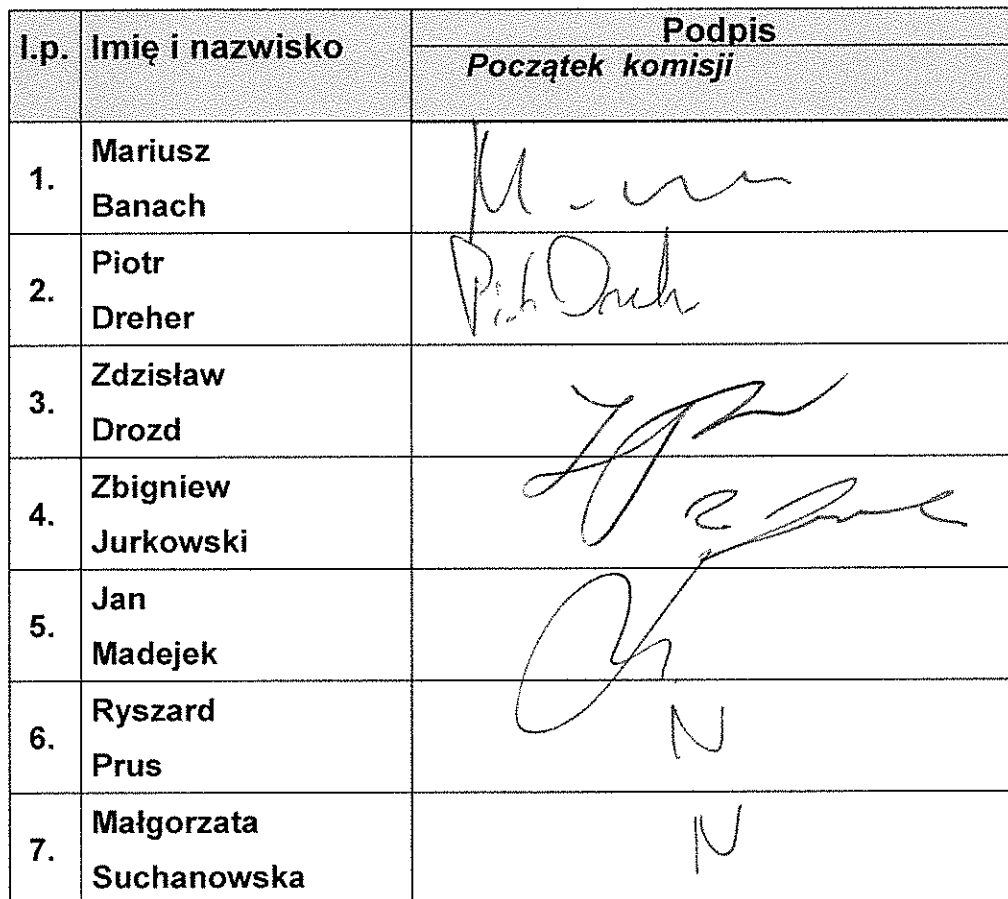 l.p. Imię i nazwisko Podpis
Początek komisji
1. Mariusz
Banach
2. Piotr
Dreher
3. Zdzisław
Drozd
4. Zbigniew
Jurkowski
5. Jan
Madejek
6. Ryszard
Prus N
7. Małgorzata
Suchanowska N